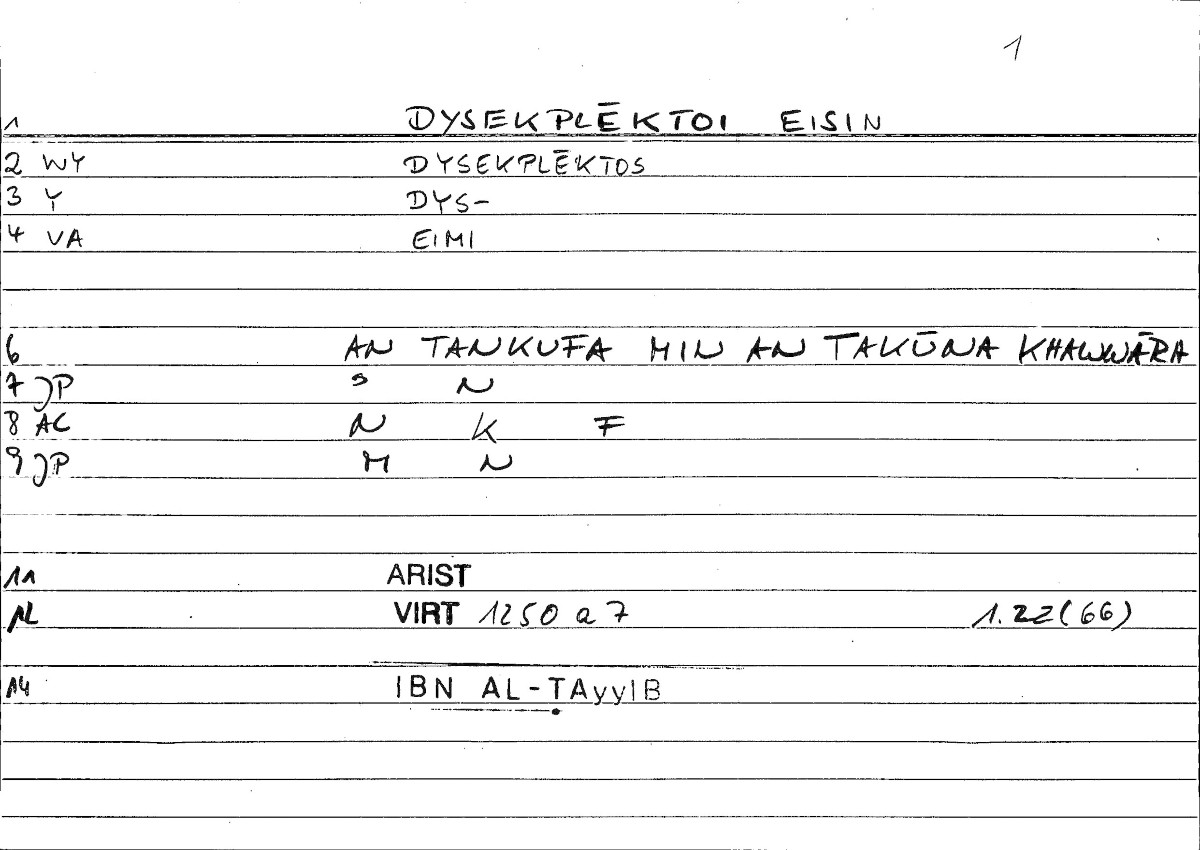 1
1 DYSEKPLĒKTOI EISIN
2 WY DYSEKPLĒKTOS
3 Y DYS-
4 VA EIMI
6 AN TANKUFA MIN AN TAKŪNA KHAWWĀRA
7 JP ʾ N
8 AC N K F
9 JP M N
11 ARIST
12 VIRT 1250 a 7 1.22(66)
14 IBN AL-ṬAyyIB